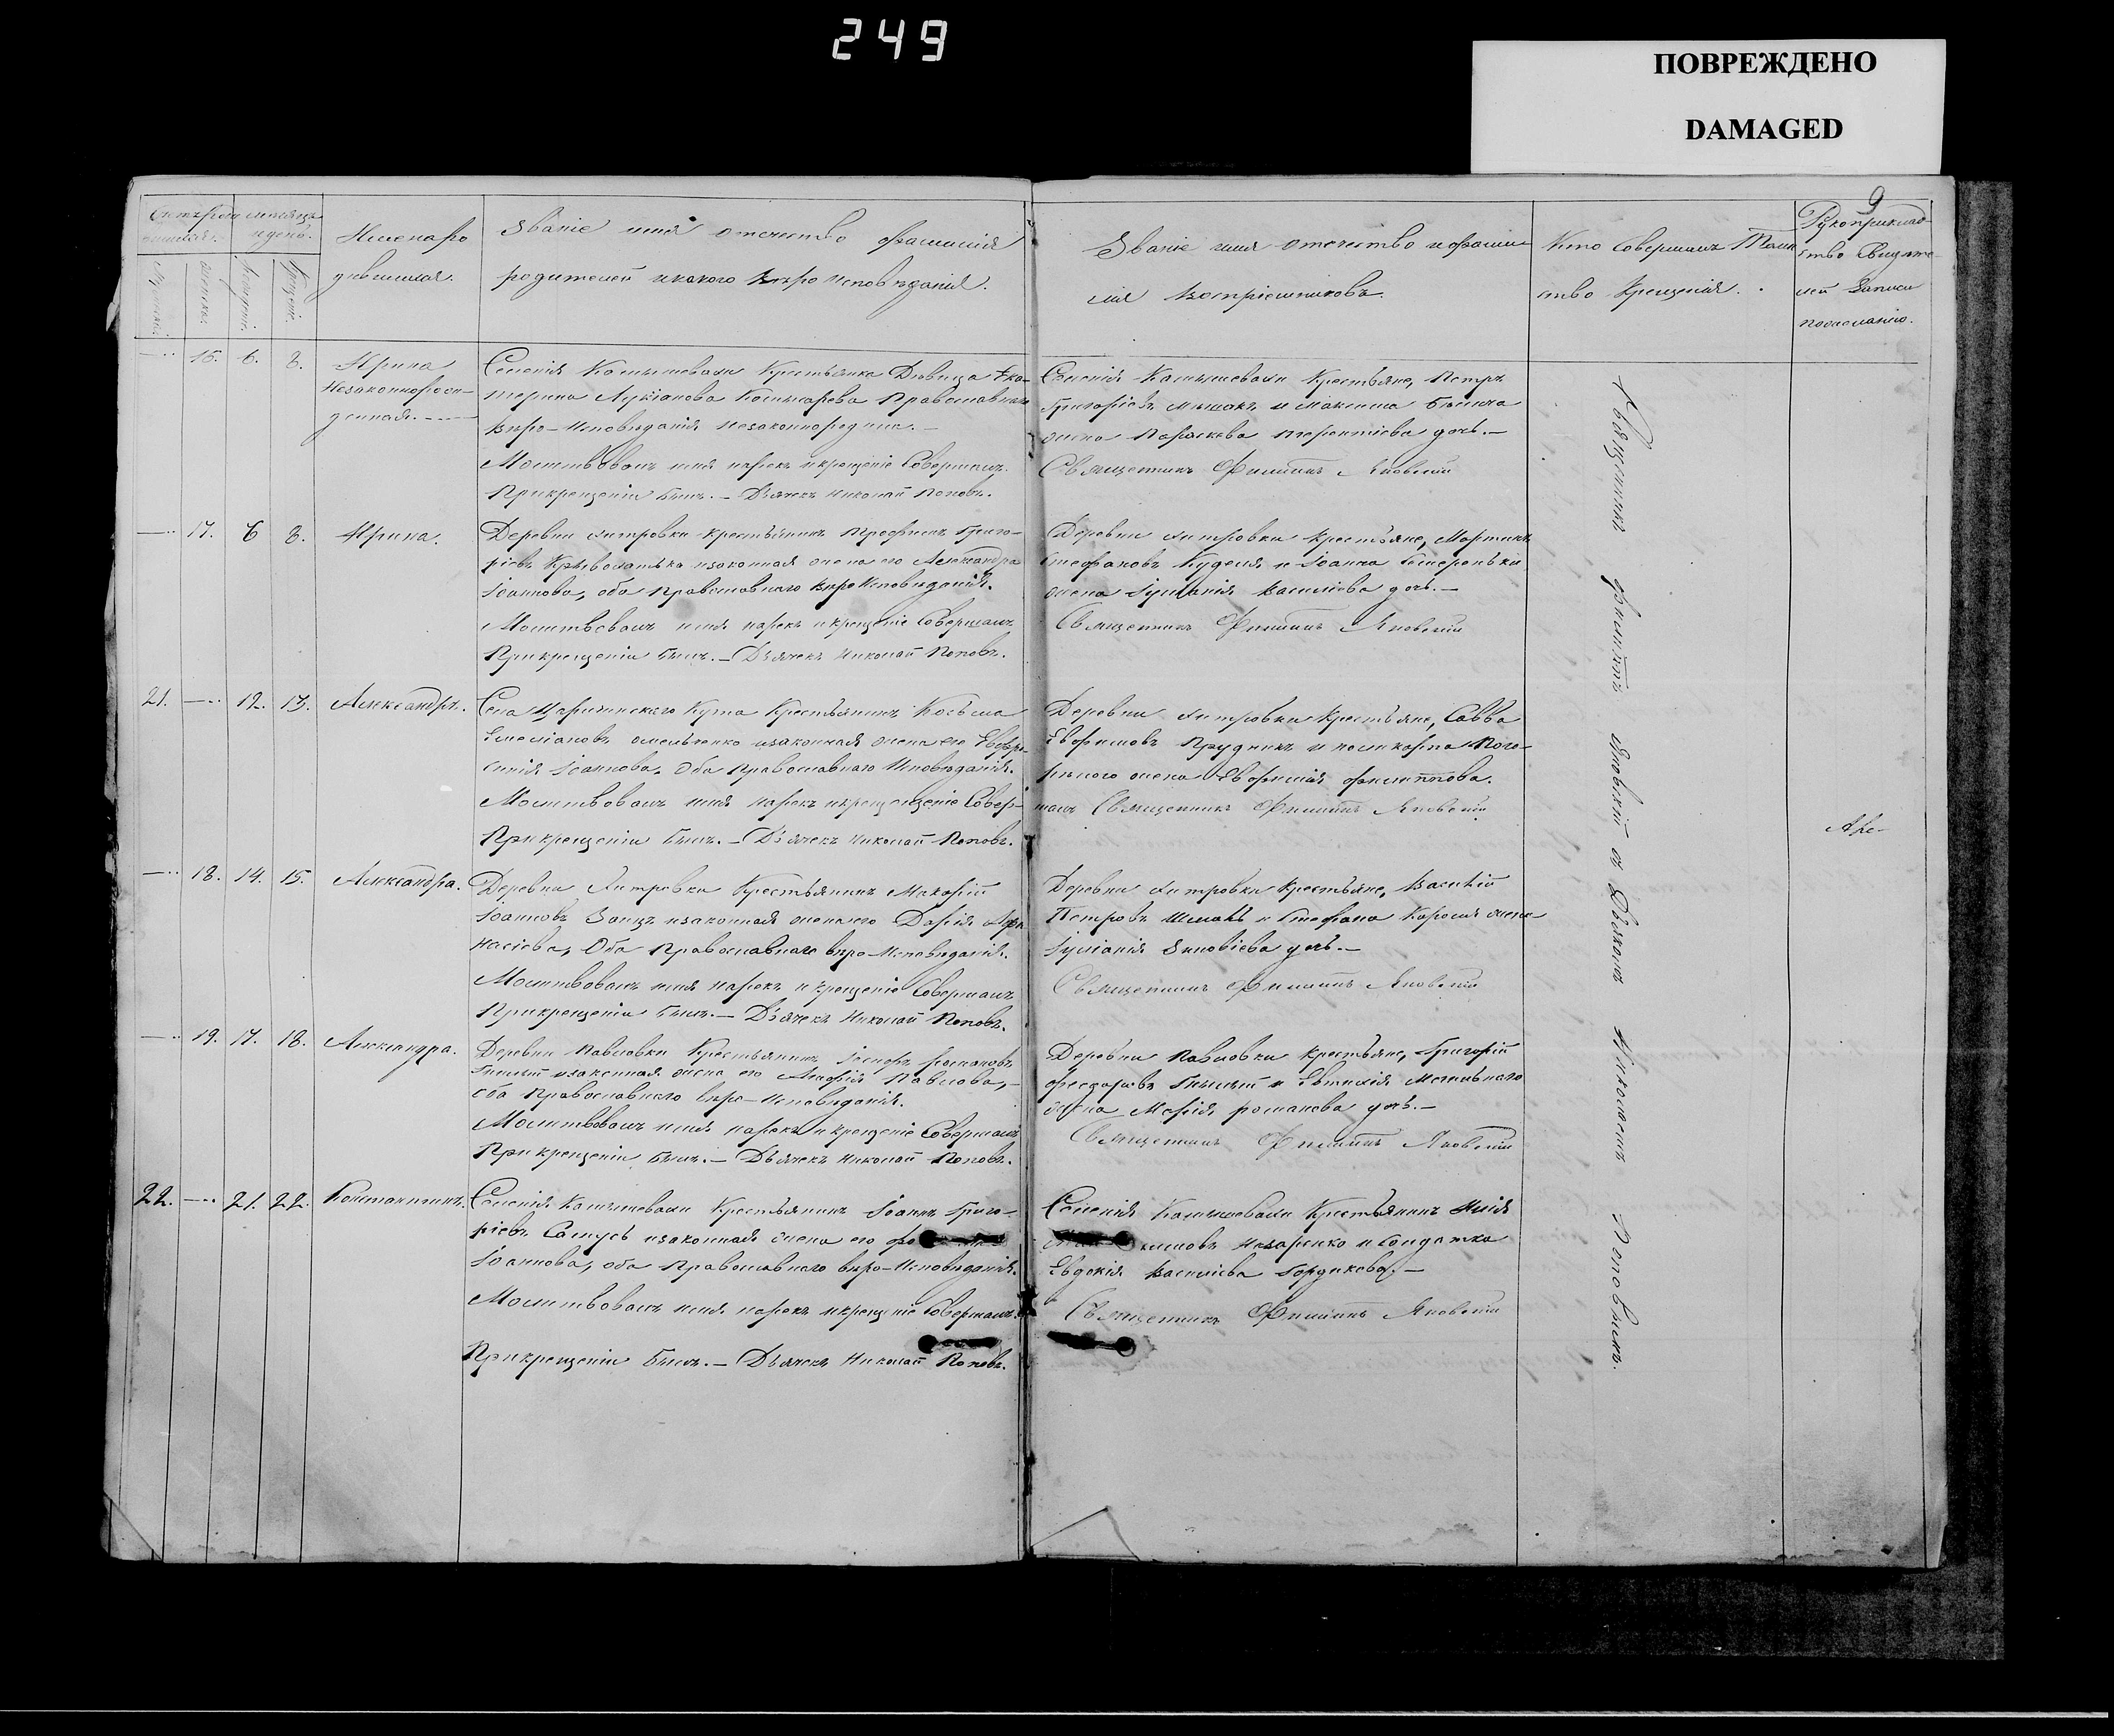 249
ПОВРЕЖДЕНО
DAMAGED
9
мѣсяца
и день.
Имена ро
дившихся.
Званіе имя отчество фамилія
родителей и какого вѣроисповѣданія.
Званіе имя отчество и фами
лія воспріемниковъ.
Кто совершалъ Таин
ство Крещенія.
Рукоприклад-
ство свидѣте-
лей записи
по желанію.
16. 6. 8. Ирина
Незаконнорож-
денная.
Селенія Камышевахи Крестьянка Дѣвица Ека-
терина Лукіанова Православнаго
вѣро-Исповѣданія незаконно
Молитвовалъ имя нарекъ и крещеніе Совершалъ
При крещеніи былъ. — Дьячекъ Николай Поповъ.
Селенія Камышевахи Крестьяне, Петръ
Григорьевъ и Максима
жена Параскева Терентіева дочь. —
Священникъ Филиппъ Яновскій
17. 6 8. Ирина.
Деревни крестьянинъ Григо-
ріевъ и законная жена его Александра
Іоаннова, оба Православнаго вѣроисповѣданія.
Молитвовалъ имя нарекъ и крещеніе Совершалъ
При крещеніи былъ. — Дьячекъ Николай Поповъ.
Деревни крестьяне, Мартинъ
Стефановъ Куделя и Іоанна
жена Іуліанія Василіева дочь. —
Священникъ Филиппъ Яновскій
21. — 12. 13. Александръ.
Села Царичинскаго Кута Крестьянинъ Косьма
Емеліановъ Омельченко и законная жена его Евфро-
синія Іоаннова, Оба Православнаго Исповѣданія.
Молитвовалъ имя нарекъ и крещеніе Совер-
При крещеніи былъ. — Дьячекъ Николай Поповъ.
Деревни крестьяне, Савва
Прудникъ и Поликарпа Пого-
рѣлого жена Евфимія Филиппова.
шалъ Священникъ Филиппъ Яновскій
18. 14. 15. Александра.
Деревни Крестьянинъ Макарій
Іоанновъ Заецъ и законная жена его Дарія Афа
насіева, Оба Православнаго вѣро-Исповѣданія.
Молитвовалъ имя нарекъ и крещеніе Совершалъ
При крещеніи былъ. — Дьячекъ Николай Поповъ.
Деревни крестьяне, Василій
Петровъ и Стефана жена
Іуліанія Зиновіева дочь. —
Священникъ Филиппъ Яновскій
19. 17. 18. Александра.
Деревни Павловки Крестьянинъ Романовъ
и законная жена его Павлова,
оба Православнаго вѣро-Исповѣданія.
Молитвовалъ имя нарекъ и крещеніе Совершалъ
При крещеніи былъ. — Дьячекъ Николай Поповъ.
Деревни Павловки крестьяне, Григорій
Феодоровъ и Евтихія
жена Марія Романова дочь. —
Священникъ Филиппъ Яновскій
22. — 21. 22. Константинъ.
Селенія Камышевахи Крестьянинъ Іоаннъ Григо-
ріевъ Самусь и законная жена его
Іоаннова, оба Православнаго вѣро-Исповѣданія.
Молитвовалъ имя нарекъ и крещеніе Совершалъ
При крещеніи былъ. — Дьячекъ Николай Поповъ.
Селенія Камышевахи Крестьянинъ Илія
Назаренко и Солдатка
Евдокія Василіева Гордикова. —
Священникъ Филиппъ Яновскій
Священникъ Филиппъ Яновскій съ Дьякомъ Николаемъ Поповымъ.